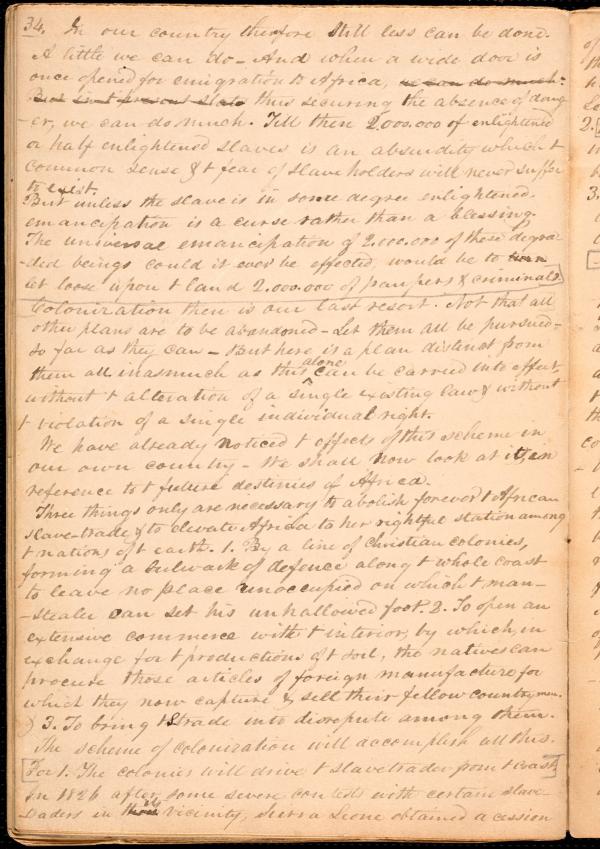 34. In our country therefore still less can be done.
A little we can do - And when a wide door is
once opened for emigration to Africa, we can do much.
But in t present state thus securing the absence of dang
-er, we can do much. Till then 2,000.000 of enlightened
or half enlightened slaves is an absurdity which t
common sense & t fear of slave holders will never suffer
to exist.
But unless the slave is in some degree enlightened.
emancipation is a curse rather than a blessing.
The universal emancipation of 2.000.000 of these degra-
-ded beings could it ever be effected, would be to turn
let loose upon t land 2.000.000 of paupers & criminals]
Colonization then is our last resort. Not that all
other plans are to be abandoned - Let them all be pursued -
so far as they can - But here is a plan distinct from
them all inasmuch as this alone can be carried into effect,
without t alteration of a single existing law & without
t violation of a single individual right.
We have already noticed t effects of this scheme in
our own country - We shall now look at it, in
reference to t future destinies of Africa.
Three things only are necessary to abolish forever t African
slave-trade & to elevate Africa to her rightful station among
t nations of t earth. 1. By a line of Christian colonies,
forming a bulwark of defence along t whole coast
to leave no place unoccupied on which t man-
-stealer can set his unhallowed foot. 2. To open an
extensive commerce with t interior, by which, in
exchange for t productions of t soil, the natives can
procure those articles of foreign manufacture for
which they now capture & sell their fellow countrymen.
) 3. To bring t S trade into disrepute among them.
The scheme of colonization will accomplish all this.
[For 1. The colonies will drive t slavetrader from t coast]
In 1826 after some severe contests with certain slave-
traders in its vicinity, Sierra Leone obtained a cession